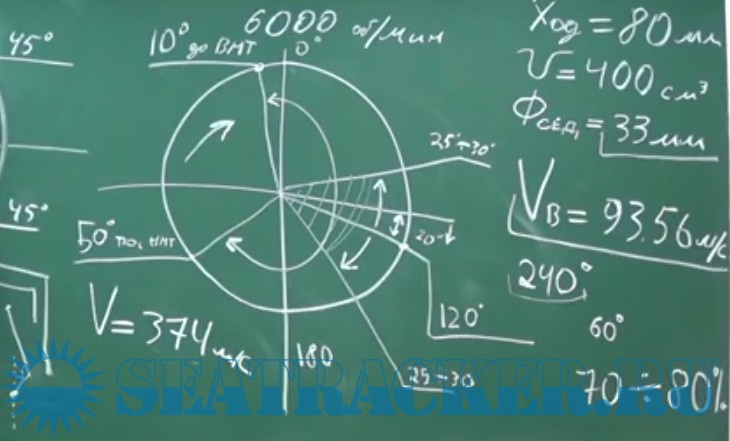 45°
10° до ВМТ
6000 об/мин
0°
Ход = 80 мм
V = 400 см³
Фсед, = 33 мм
25°÷30°
VB = 93.56 м/с
45°
50° после НМТ
20°
240°
V = 374 м/с
120°
60°
180
25÷30
70÷80%
SEATRACKER.RU